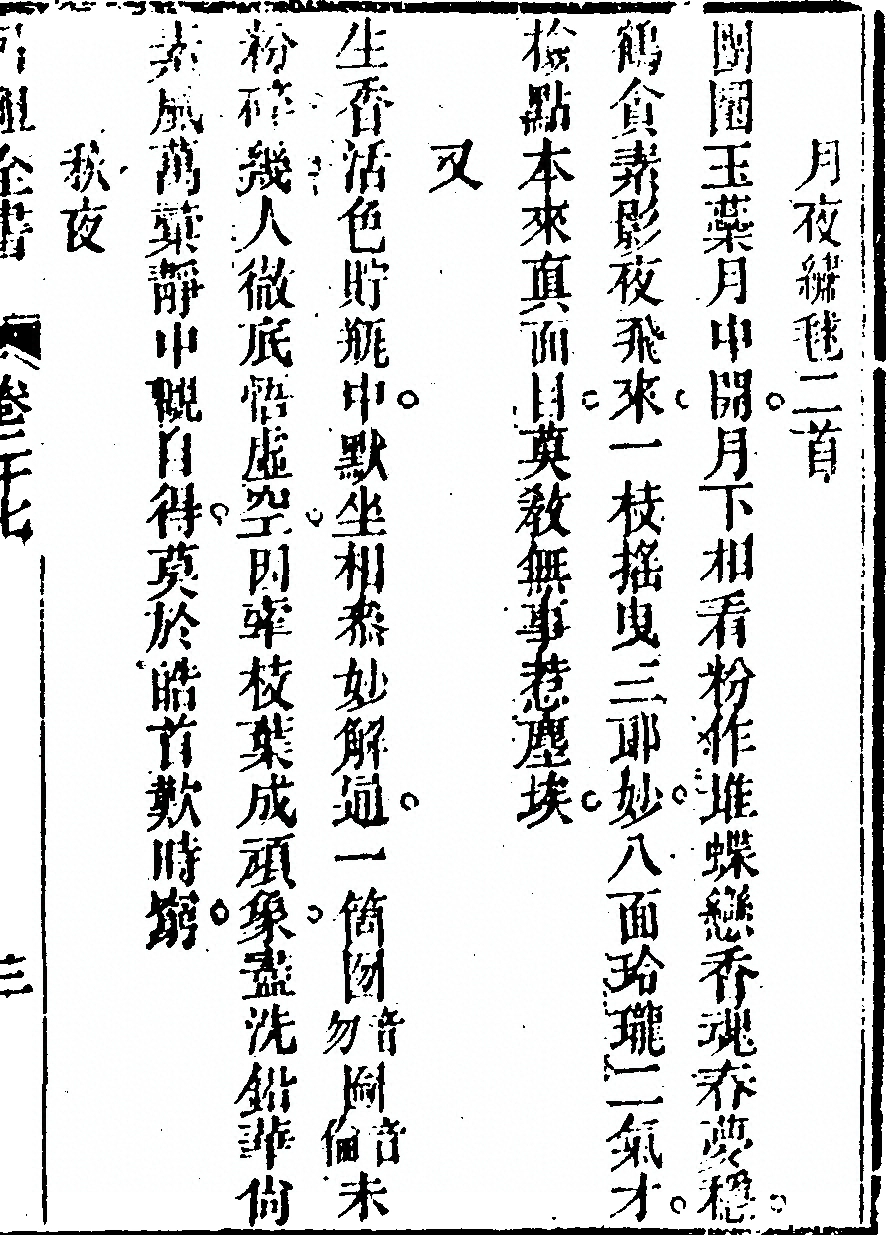 月夜繡毬二首
團團玉蘂月中開月下相看粉作堆蝶戀香魂春夢穩
鶴貪素影夜飛來一枝搖曳三耶妙八面玲瓏二氣才
檢點本來真面目莫敎無事惹塵埃
又
生香活色貯瓶中默坐相叅妙解通一箇囫音勿圇音倫未
粉碎幾人徹底悟虛空因牽枝葉成頑象盡洗鉛華尙
素風萬葉靜中觀自得莫於皓首歎時窮
秋夜
全書 卷二十七 三